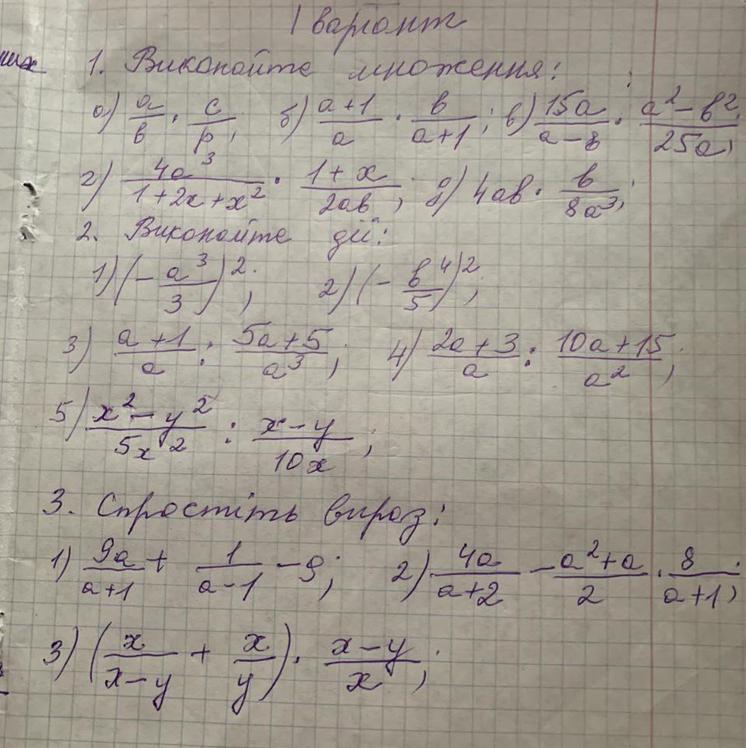 1 варіант
1. Виконайте множення:
а) a/b · c/p; б) (a+1)/a · b/(a+1); в) 15a/(a-b) · (a²-b²)/25a;
г) 4a³/(1+2x+x²) · (1+x)/2ab; д) 4ab · b/8a³;
2. Виконайте дії:
1) (-a³/3)²; 2) (-b⁴/5)²;
3) (a+1)/a : (5a+5)/a³; 4) (2a+3)/a : (10a+15)/a²;
5) (x²-y²)/5x² : (x-y)/10x;
3. Спростіть вираз:
1) 9a/(a+1) + 1/(a-1) - 9; 2) 4a/(a+2) - (a²+a)/2 · 8/(a+1);
3) (x/(x-y) + x/y) · (x-y)/x;